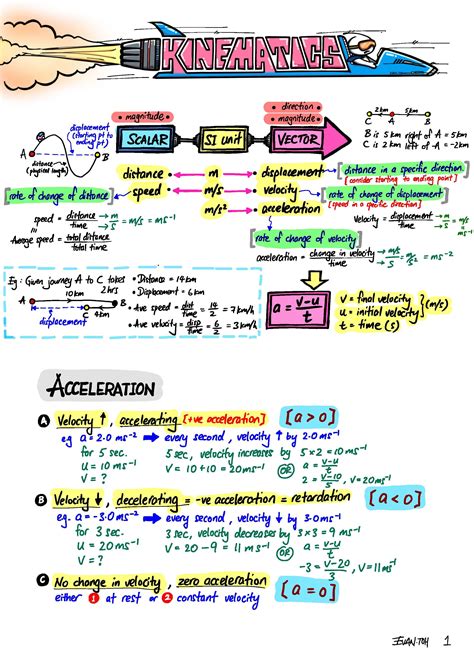 KINEMATICS
• direction
• magnitude • magnitude
SCALAR SI UNIT VECTOR
2km 5km
C A B
B is 5km right of A = 5km
C is 2km left of A = -2km
displacement
(starting pt to
ending pt)
A B
distance
(physical length)
distance m displacement
distance in a specific direction
[consider starting to ending point]
rate of change of distance
speed m/s velocity
rate of change of displacement
[speed in a specific direction]
m/s² acceleration
speed = distance/time → m/s = m/s = ms⁻¹
Average speed = total distance/total time
Velocity = displacement/time → m/s = m/s = ms⁻¹
rate of change of velocity
acceleration = change in velocity/time → m/s/s = m/s² = ms⁻²
Eg: Given journey A to C takes 2hrs
10km
A B
C 4km
displacement
• Distance = 14km
• Displacement = 6km
• Ave speed = dist/time = 14/2 = 7km/h
• Ave velocity = disp/time = 6/2 = 3km/h
a = v-u/t
V = final velocity
u = initial velocity
} (m/s)
t = time (s)
ACCELERATION
A Velocity ↑, accelerating [+ve acceleration] [a>0]
eg a = 2.0 ms⁻² → every second, velocity ↑ by 2.0 ms⁻¹
for 5 sec. 5 sec, velocity increases by 5×2 = 10 ms⁻¹
u = 10 ms⁻¹ V = 10+10 = 20ms⁻¹ OR a = v-u/t
V = ? 2 = v-10/5, V = 20ms⁻¹
B Velocity ↓, decelerating = -ve acceleration = retardation [a<0]
eg. a = -3.0 ms⁻² → every second, velocity ↓ by 3.0 ms⁻¹
for 3 sec. 3 sec, velocity decreases by 3×3 = 9 ms⁻¹
u = 20ms⁻¹ V = 20-9 = 11 ms⁻¹ OR a = v-u/t
V = ? -3 = v-20/3, V = 11ms⁻¹
C No change in velocity, zero acceleration [a=0]
either 1 at rest or 2 constant velocity
EVAN TOH 1